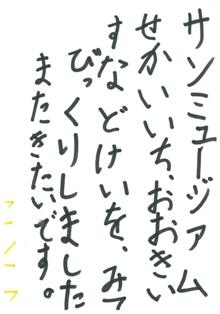 サンミュージアム
せかいいち、おおきい
すなどけいを、みて
びっくりしました
またきたいです。